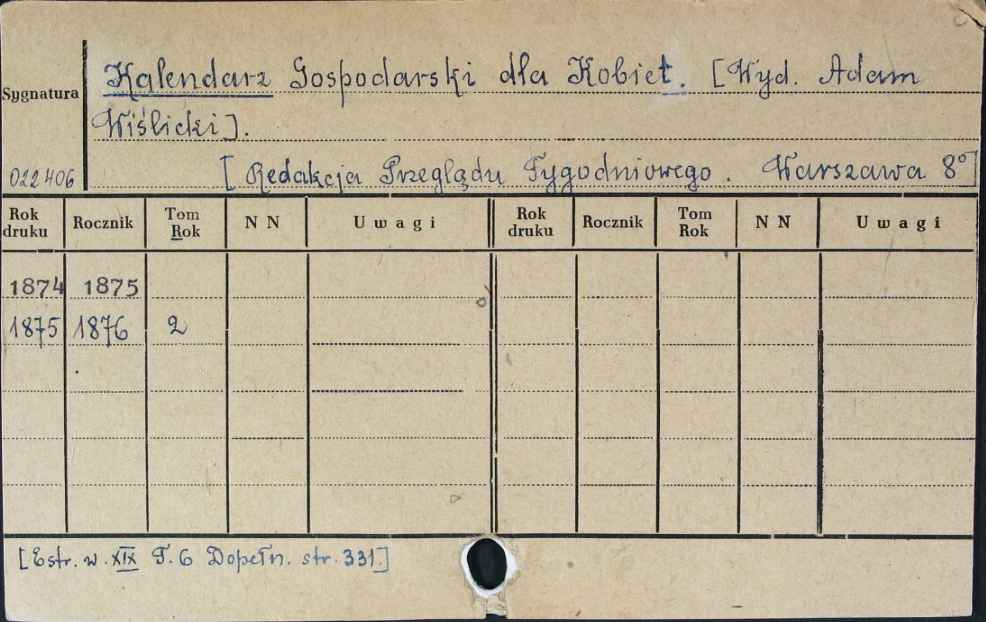 Kalendarz Gospodarski dla Kobiet. [Wyd. Adam
Sygnatura
Wiślicki].
022406 [Redakcja Przeglądu Tygodniowego. Warszawa 8°]
Rok druku Rocznik Tom Rok N N Uwagi Rok druku Rocznik Tom Rok N N Uwagi
1874 1875
1875 1876 2
[Estr. w. XIX T. 6 Dopełn. str. 331.]